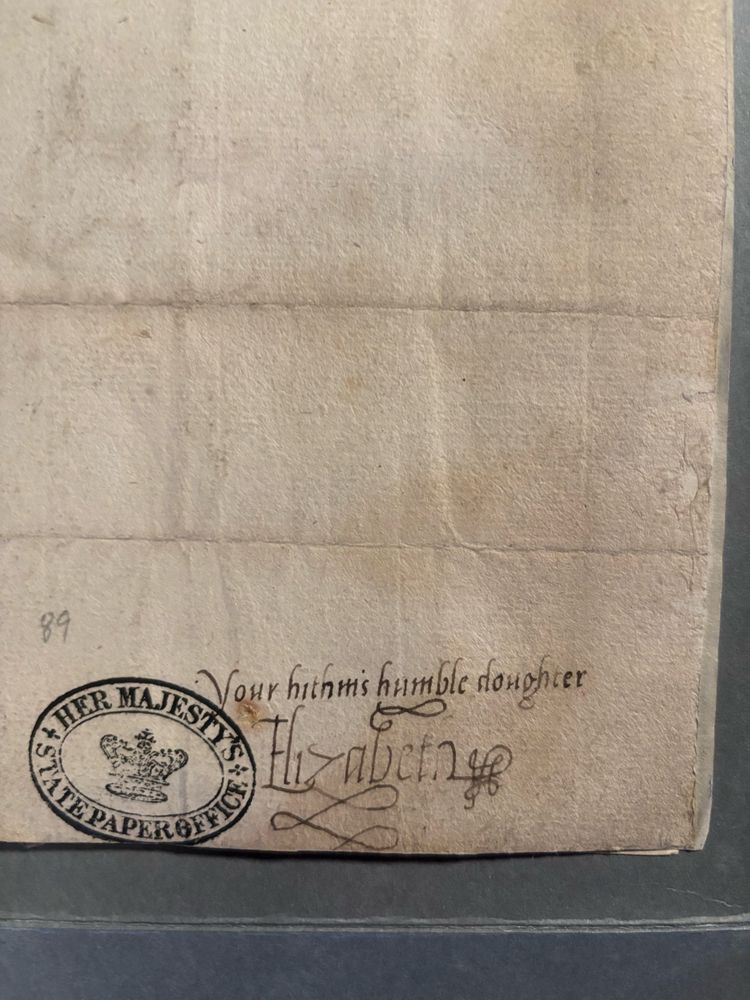 89
Your hithnis humble doughter
Elizabeth
HER MAJESTY'S
STATE PAPER OFFICE